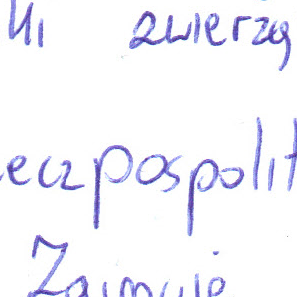 zwierzą
eczpospolit
Zajmuje